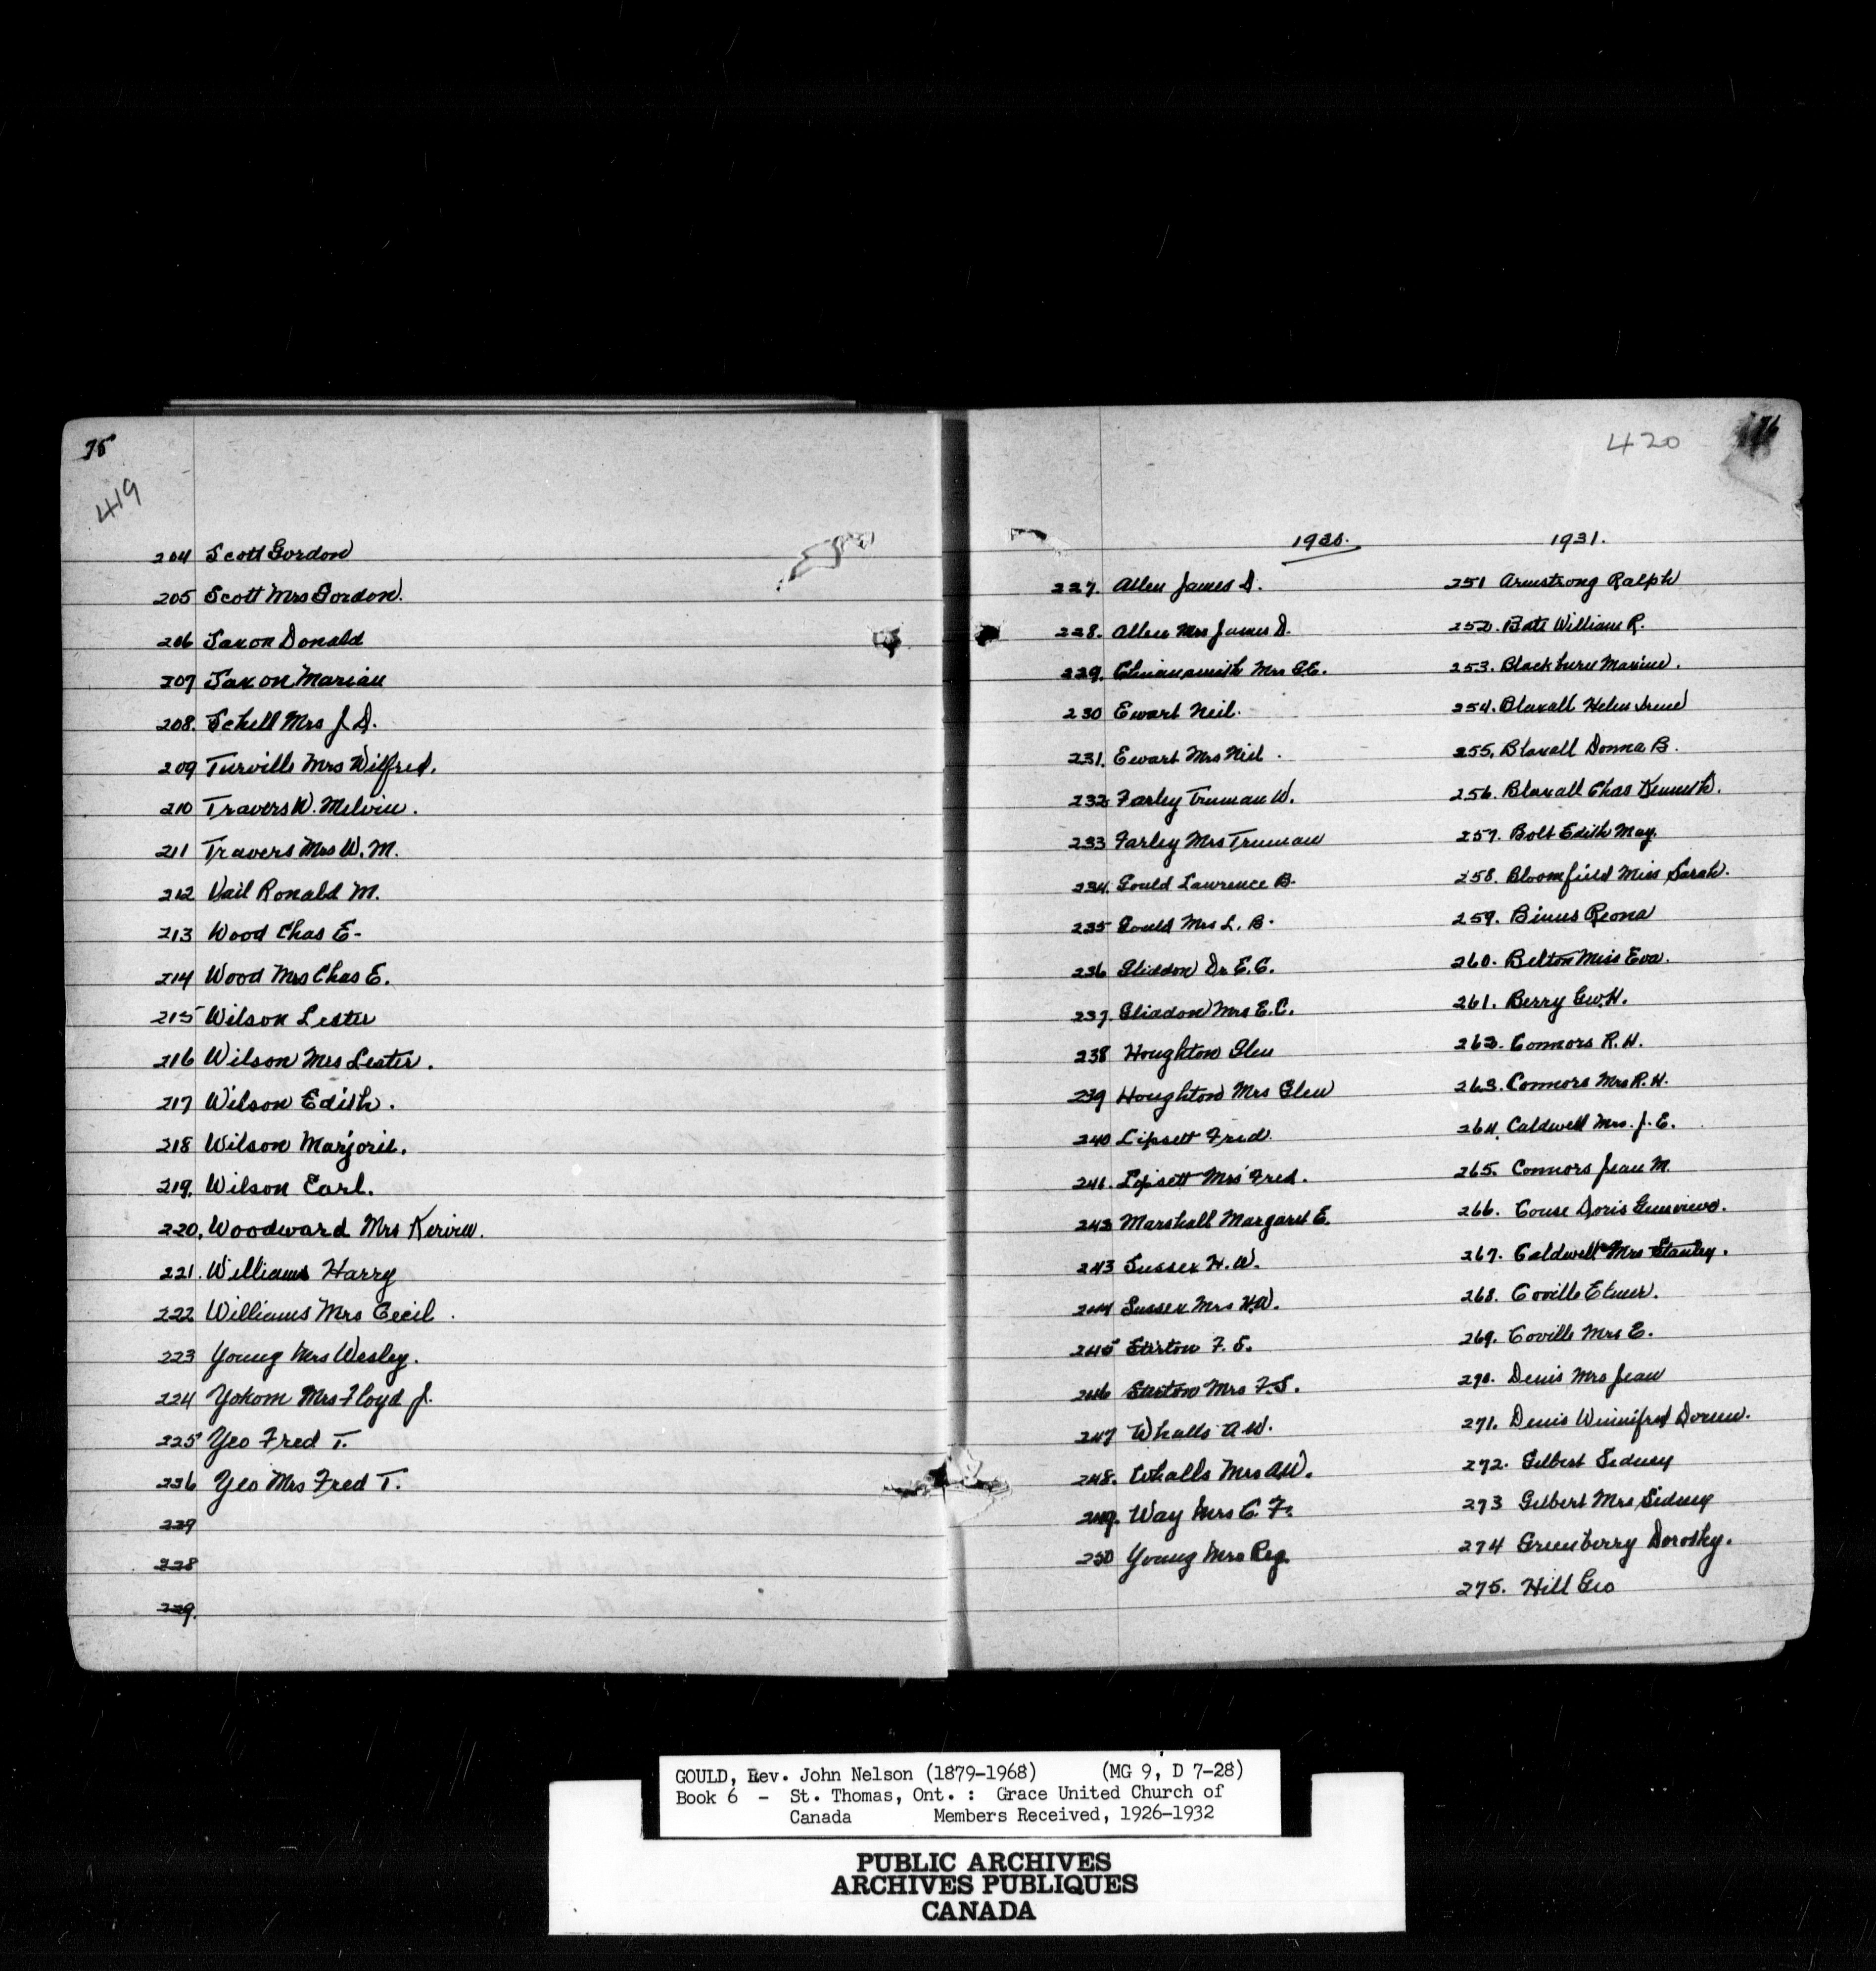 75
419
204 Scott Gordon
205 Scott Mrs Gordon.
206 Saxon Donald
207 Saxon Marian
208. Schell Mrs J. D.
209 Turville Mrs Wilfred.
210 Travers W. Melvin.
211 Travers Mrs W. M.
212 Vail Ronald M.
213 Wood Chas E-
214 Wood Mrs Chas E.
215 Wilson Lester
216 Wilson Mrs Lester.
217 Wilson Edith.
218 Wilson Marjorie.
219. Wilson Earl.
220. Woodward Mrs
221. Williams Harry
222 Williams Mrs Cecil.
223 Young Mrs Wesley.
224 Yokom Mrs Floyd J.
225 Yeo Fred T.
226 Yeo Mrs Fred T.
227
228
229.
420
76
1930.
227. Allen James D.
228. Allen Mrs James D.
229. Mrs G.E.
230 Ewart Neil.
231. Ewart Mrs Neil.
232 Farley Truman W.
233 Farley Mrs Truman
234. Gould Lawrence B.
235 Gould Mrs L. B.
236 Gliddon Dr E. C.
237. Gliddon Mrs E. C.
238 Houghton Glen
239 Houghton Mrs Glen
240 Lipsett Fred.
241. Lipsett Mrs Fred.
242 Marshall Margaret E.
243 Sussex H. W.
244 Sussex Mrs H.W.
245 Stirton F. S.
246 Stirton Mrs F. S.
247 Whalls A W.
248. Whalls Mrs A W.
249. Way Mrs C. F.
250 Young Mrs Reg.
1931.
251 Armstrong Ralph
252. Bate William R.
253. Blackburn Maxine.
254. Blaxall Helen Irene
255. Blaxall Donna B.
256. Blaxall Chas Kenneth.
257. Bolt Edith May.
258. Bloomfield Miss Sarah.
259. Binns Reona
260. Belton Miss Eva.
261. Berry Geo. H.
262. Connors R. H.
263. Connors Mrs R. H.
264. Caldwell Mrs. J. E.
265. Connors Jean M.
266. Couse Doris Genevieve.
267. Caldwell Mrs Stanley.
268. Coville Elmer.
269. Coville Mrs E.
270. Denis Mrs Jean
271. Denis Winnifred Doreen.
272. Gilbert Sidney
273 Gilbert Mrs Sidney
274 Greenberry Dorothy.
275. Hill Geo
GOULD, Rev. John Nelson (1879-1968) (MG 9, D 7-28)
Book 6 - St. Thomas, Ont. : Grace United Church of
Canada Members Received, 1926-1932
PUBLIC ARCHIVES
ARCHIVES PUBLIQUES
CANADA